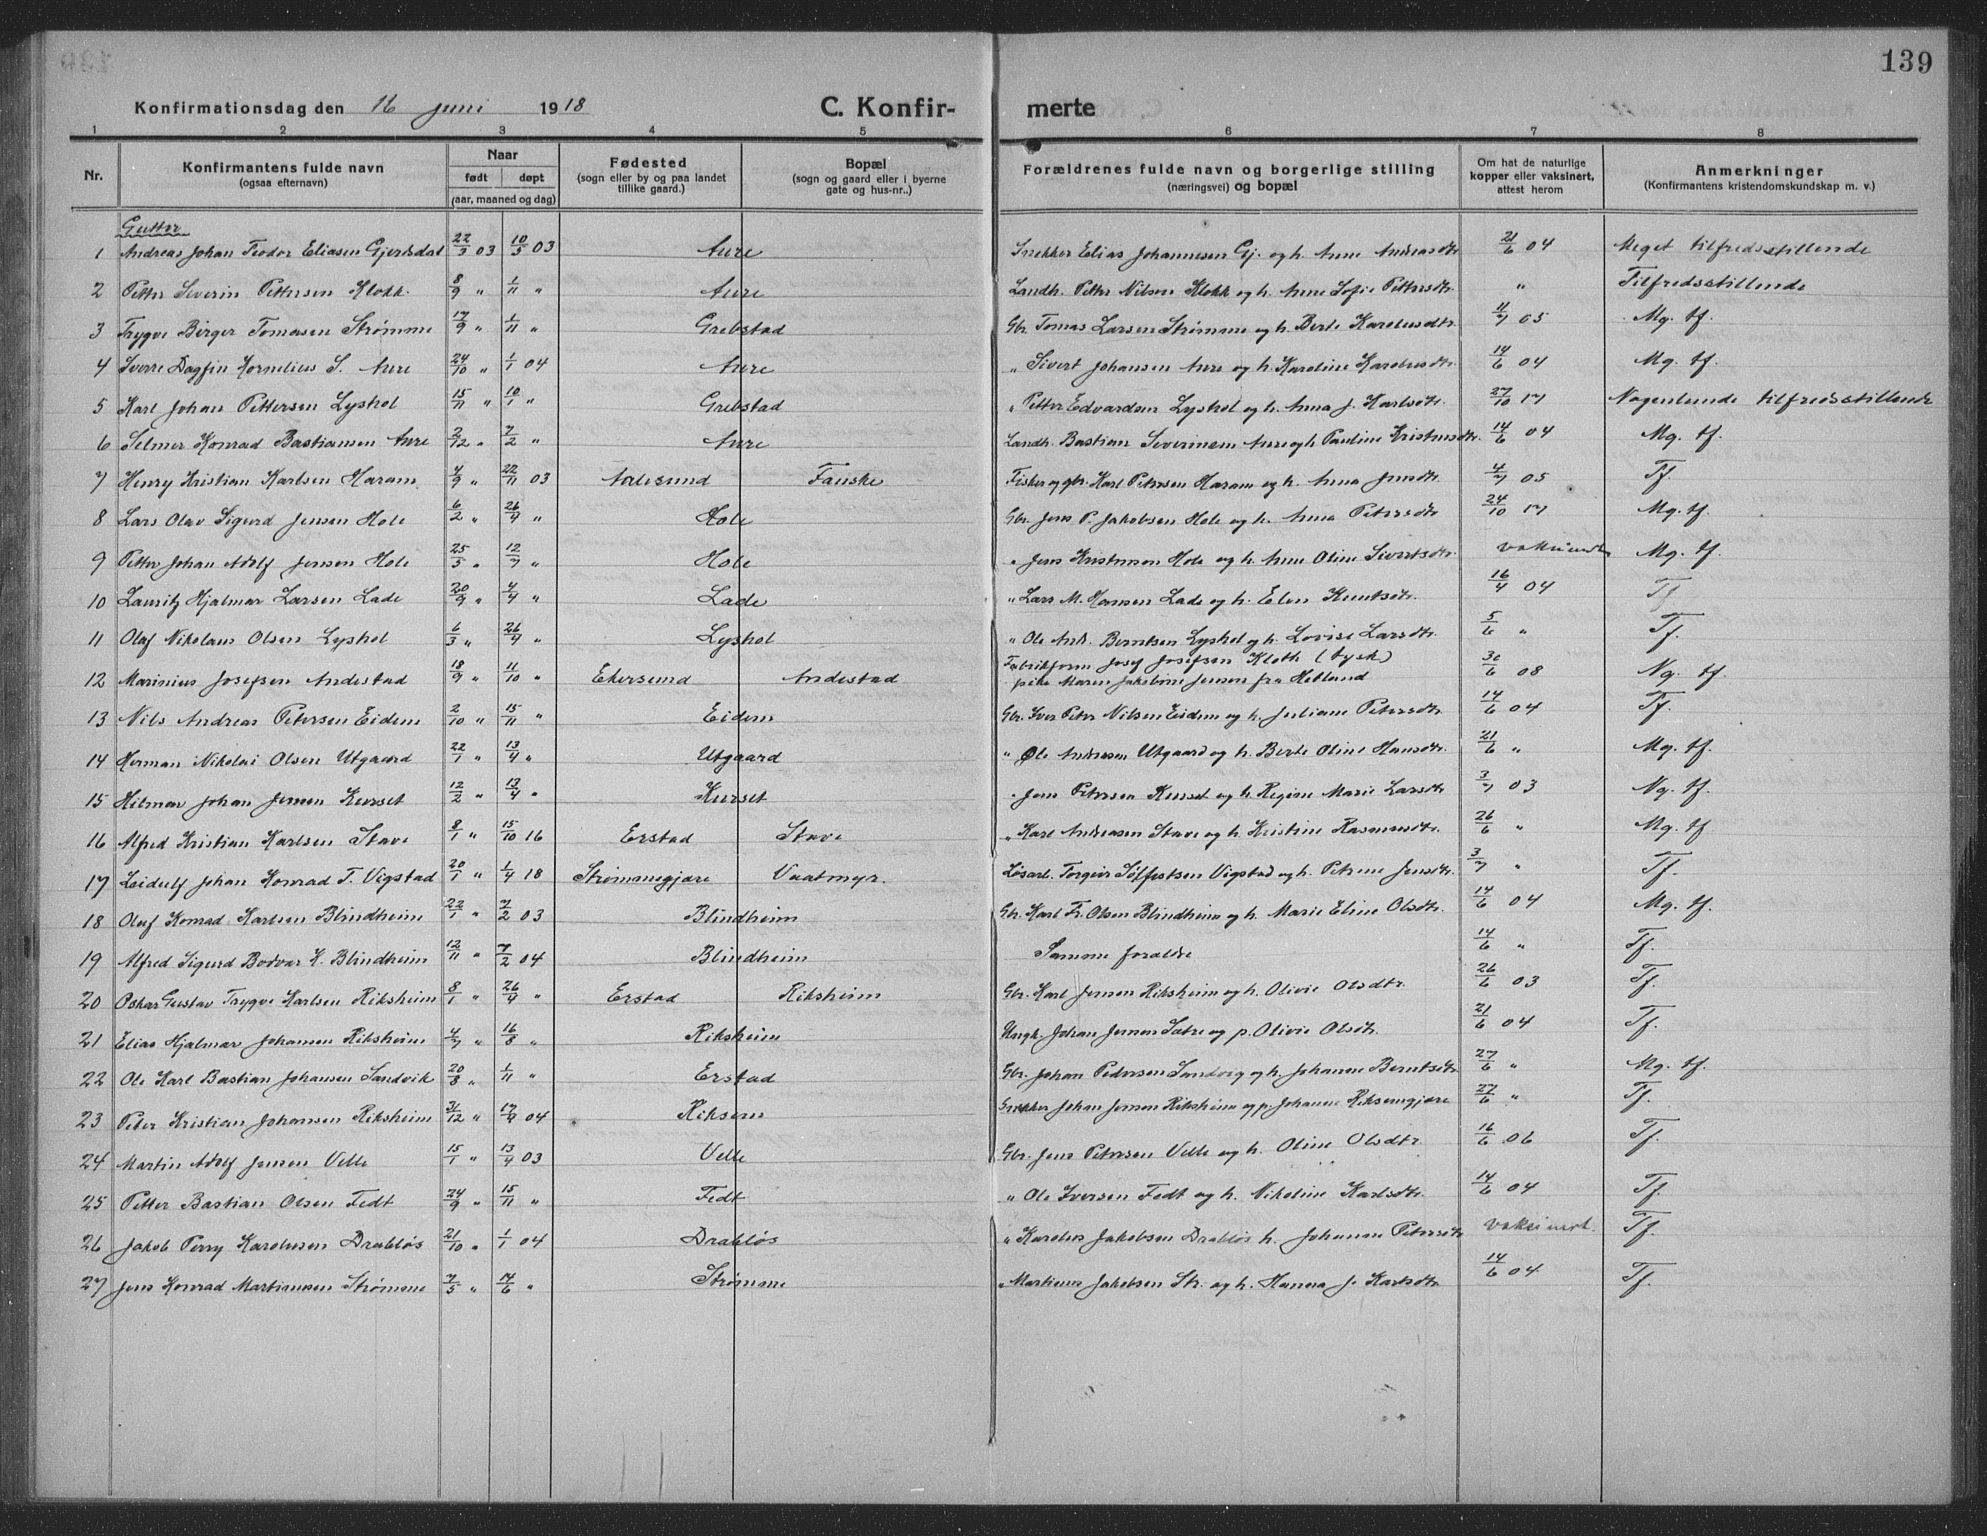 139
Konfirmationsdag den 16 juni 1918 C. Konfirmerte
1 2 3 4 5 6 7 8
Nr. Konfirmantens fulde navn (ogsaa efternavn) Naar født døpt (aar, maaned og dag) Fødested (sogn eller by og paa landet tillike gaard.) Bopæl (sogn og gaard eller i byerne gate og hus-nr..) Forældrenes fulde navn og borgerlige stilling (næringsvei) og bopæl Om hat de naturlige kopper eller vaksinert, attest herom Anmerkninger (Konfirmantens kristendomskundskap m. v.)
Gutter
1 Andreas Johan Teodor Eliasen Gjertsdal 22/3 03 10/5 03 Aure Snekker Elias Johannesen Gj. og h. Anne Andreasdtr 21/6 04 Meget tilfredsstillende
2 Petter Severin Pettersen Klokk 8/9 " 1/11 " Aure Landh. Petter Nilsen Klokk og h. Anne Sofie Pettersdtr. " Tilfredsstillende
3 Trygve Birger Tomasen Strømme 17/9 " 1/11 " Grebstad Gbr. Tomas Larsen Strømme og h. Berte Karolusdtr. 11/7 05 Mg. tf.
4 Sverre Dagfin Kornelius S. Aure 24/10 " 1/1 04 Aure " Sivert Johansen Aure og h. Karoline Karolusdtr. 14/6 04 Mg. tf.
5 Karl Johan Pettersen Lyshol 15/11 " 10/1 " Grebstad " Petter Edvardsen Lyshol og h. Anna J. Karlsdtr. 27/10 17 Nogenlunde tilfredsstillende
6 Selmer Konrad Bastiansen Aure 2/12 " 7/2 " Aure Landh. Bastian Severinsen Aure og h. Pauline Kristensdtr. 14/6 04 Mg. tf.
7 Henry Kristian Karlsen Haram 4/9 " 22/11 03 Aalesund Fauske Fisker og gbr. Karl Petersen Haram og h. Anna Jensdtr. 4/7 05 Tf.
8 Lars Olav Sigurd Jensen Hole 6/2 " 26/4 " Hole Gbr. Jens P. Jakobsen Hole og h. Anna Petersdtr 24/10 17 Mg. tf.
9 Petter Johan Adolf Jensen Hole 25/5 " 12/7 " Hole " Jens Kristensen Hole og h. Anne Oline Sivertsdtr. vaksinert Mg. tf.
10 Lauritz Hjalmar Larsen Lade 20/9 " 4/4 " Lade " Lars M. Hansen Lade og h. Elen Knutsdtr. 16/4 04 Tf
11 Olaf Nikolaus Olsen Lyshol 6/3 " 26/4 " Lyshol " Ole And. Berntsen Lyshol og h. Lovise Larsdtr. 5/6 " Tf.
12 Marinius Josefsen Andestad 18/9 " 11/10 " Ekersund Andestad Fabrikform Josef Josefsen Kloth (tysk)
pike Maren Jakobine Jensen fra Hetland 30/6 08 Ng. tf.
13 Nils Andreas Petersen Eidem 2/10 " 15/11 " Eidem Gbr. Iver Peter Nilsen Eidem og h. Juliane Petersdtr 14/6 04 Tf.
14 Herman Nikolai Olsen Utgaard 22/1 " 13/4 " Utgaard " Ole Andreasen Utgaard og h. Berte Oline Hansdtr. 21/6 " Mg. tf.
15 Hilmar Johan Jensen Kurset 12/2 " 13/4 " Kurset " Jens Petersen Kurset og h. Regine Marie Larsdtr 3/7 03 Ng. tf.
16 Alfred Kristian Karlsen Stave 8/1 " 15/10 16 Erstad Stave " Karl Andreasen Stave og h. Kristine Rasmusdtr. 26/6 " Mg. tf.
17 Leidulf Johan Konrad T. Vigstad 20/1 " 1/4 18 Strømmegjære Vaatmyr. Løsarb. Torgeir Sølfestsen Vigstad og h. Petrine Jensdtr. 3/7 " Tf.
18 Olaf Konrad Karlsen Blindheim 22/1 " 7/2 03 Blindheim Gbr. Karl Fr. Olsen Blindheim og h. Marie Eline Olsdtr. 14/6 04 Mg. tf.
19 Alfred Sigurd Bodvar K. Blindheim 12/11 " 7/2 04 Blindheim Samme foraldre 14/6 " Tf.
20 Oskar Gustav Trygve Karlsen Riksheim 8/1 " 26/4 " Erstad Riksheim Gbr. Karl Jensen Riksheim og h. Olivie Olsdtr. 26/6 03 Tf.
21 Elias Hjalmar Johansen Riksheim 4/7 " 16/8 " Riksheim Ungk. Johan Jensen Sætre og p. Olivie Olsdtr. 21/6 04 Tf.
22 Ole Karl Bastian Johansen Sandvik 20/8 " 1/11 " Erstad Gbr. Johan Pedersen Sandvig og h. Johanne Berntsdtr 27/6 " Mg. tf.
23 Peter Kristian Johansen Riksheim 31/12 " 17/4 04 Riksem Snekker Johan Jensen Riksheim og p. Johanne Riksemgjære 27/6 " Tf.
24 Martin Adolf Jensen Velle 15/1 " 13/4 03 Velle Gbr. Jens Petersen Velle og h. Oline Olsdtr. 16/6 06 Tf.
25 Petter Bastian Olsen Fedt 24/9 " 15/11 " Fedt " Ole Iversen Fedt og h. Nikoline Karlsdtr. 14/6 04 Tf.
26 Jakob Perry Karolusen Drabløs 21/10 " 1/1 04 Drabløs " Karolus Jakobsen Drabløs h. Johanne Petersdtr vaksinert. Tf.
27 Jens Konrad Martinusen Strømme 7/5 " 14/6 " Strømme " Martinus Jakobsen Str. og h. Hanna J. Karlsdtr. 14/6 04 Tf.